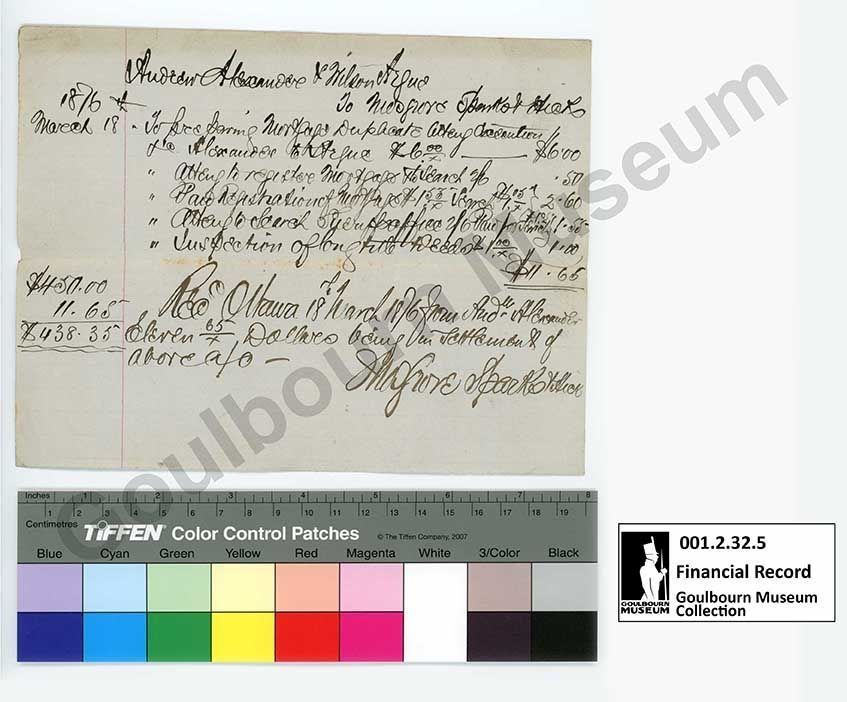 Andrew Alexander & Wilson Argue
1876 To Mosgrove Sparks & Hicks
March 18 - To preparing Mortgage Duplicate Atteng Execution
&c Alexander to Argue $6.00/x $6.00
" Atteng to register Mortgage & Search 2/6 .50
" Paid Registration of Mortgage $1.55/x Search 2.60
" Atteng to Search 2/6 Paid for 1.55
" Inspection of long title 1.00
$11.65
$450.00
11.65
$438.35
Recd Ottawa 18th March 1876 from Andw. Alexander
Eleven 65/x Dollars being in settlement of
above a/c —
Mosgrove Sparks & Hicks
Goulbourn Museum
Inches 1 2 3 4 5 6 7 8
Centimetres 1 2 3 4 5 6 7 8 9 10 11 12 13 14 15 16 17 18 19
TIFFEN® Color Control Patches © The Tiffen Company, 2007
Blue Cyan Green Yellow Red Magenta White 3/Color Black
GOULBOURN
MUSEUM
001.2.32.5
Financial Record
Goulbourn Museum
Collection